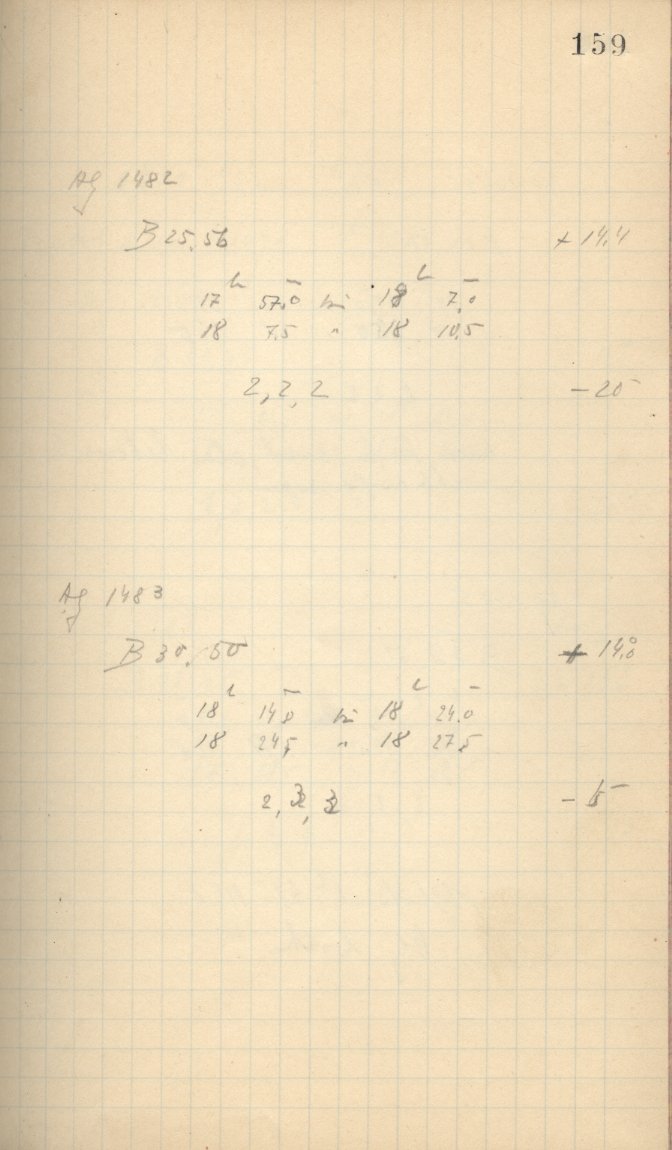 159
Ag 1482
B 25, 56 + 14,4
17 h 57,0 bis 18 h 7,0
18 7,5 " 18 10,5
2, 2, 2 - 20
Ag 1483
B 30, 50 + 14,0
18 h 14,0 bis 18 h 24,0
18 24,5 " 18 27,5
2, 3, 3